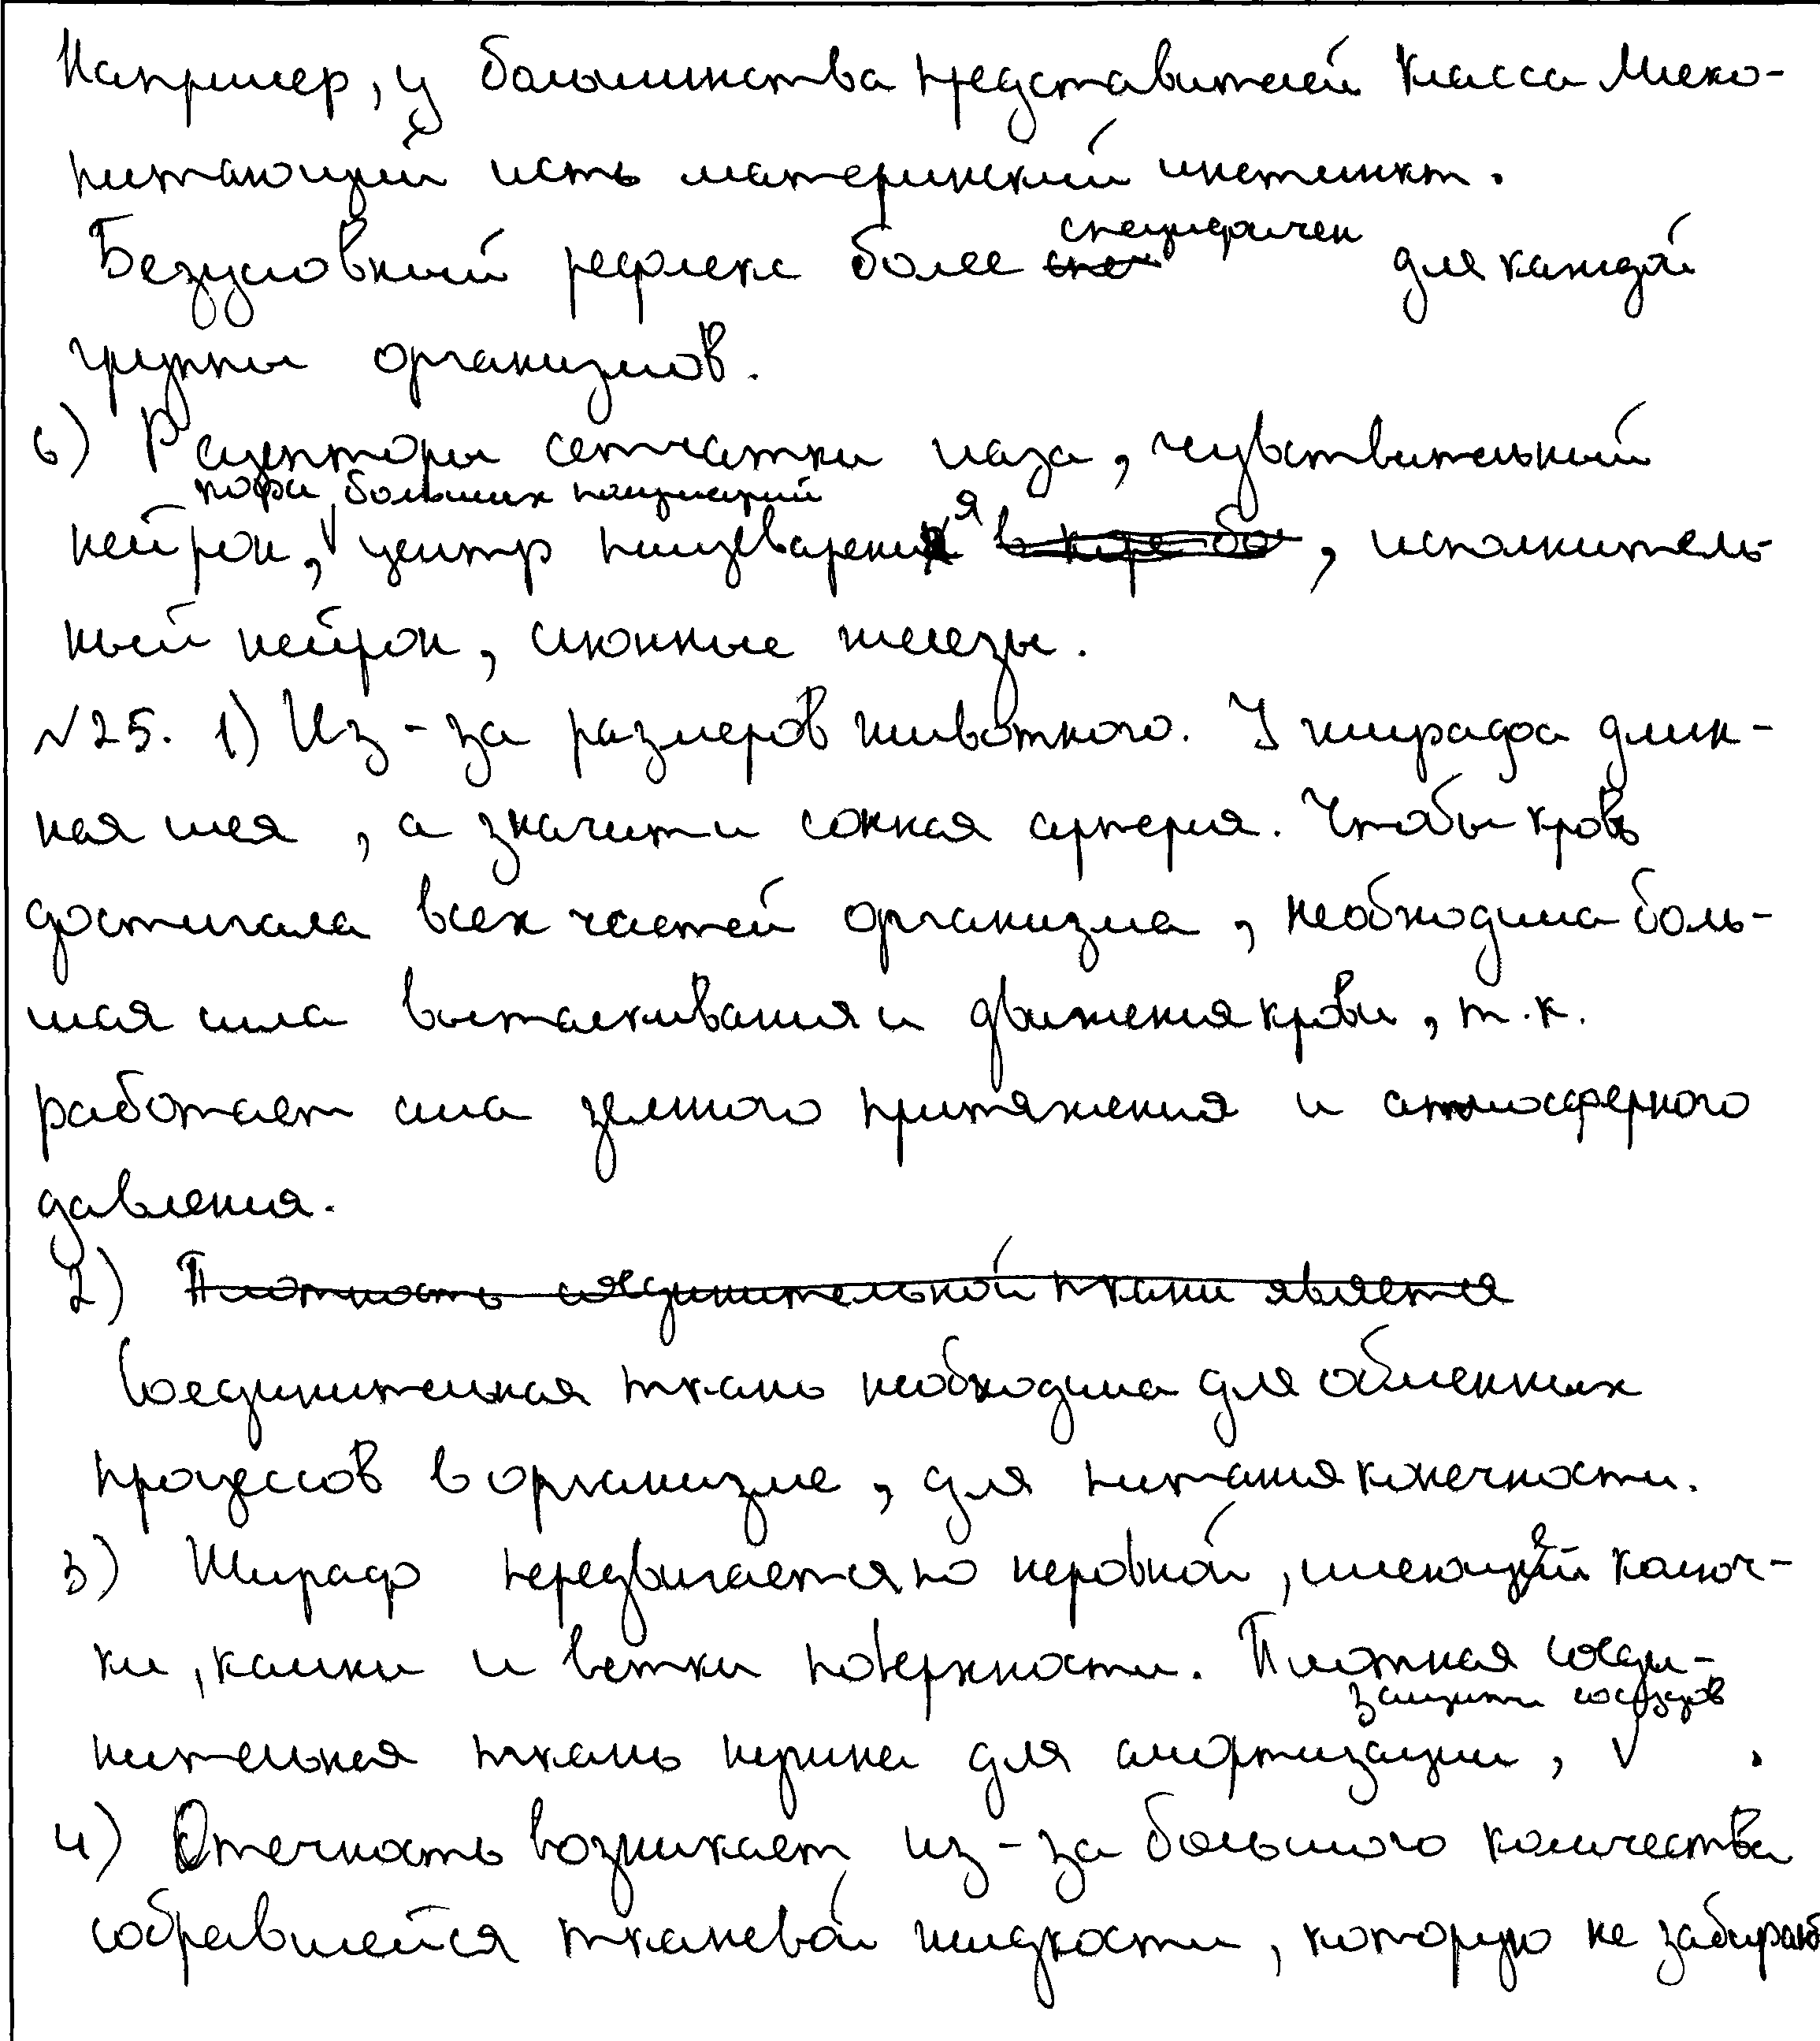 Например, у большинства представителей класса Млеко-
питающий есть материнский инстинкт.
Безусловный рефлекс более спе специфичен для каждой
группы организмов.
6) Рецепторы сетчатки глаза, чувствительный
кора больших полушарий
нейрон, центр пищеварения в коре бо, исполнитель-
ный нейрон, слюнные железы.
№25. 1) Из-за размеров животного. У жирафа длин-
ная шея, а значит и сонная артерия. Чтобы кровь
достигала всех частей организма, необходима боль-
шая сила выталкивания и движения крови, т.к.
работает сила земного притяжения и атмосферного
давления.
2) Плотность соединительной ткани является
Соединительная ткань необходима для обменных
процессов в организме, для питания конечности.
3) Жираф передвигается по неровной, имеющей колюч-
ки, камни и ветки поверхности. Плотная соеди-
защиты сосудов
нительная ткань нужна для амортизации, .
4) Отечность возникает из-за большого количества
собравшейся тканевой жидкости, которую не забирают